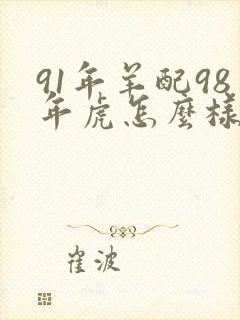 91年羊配98
年虎怎麼樣
崔波